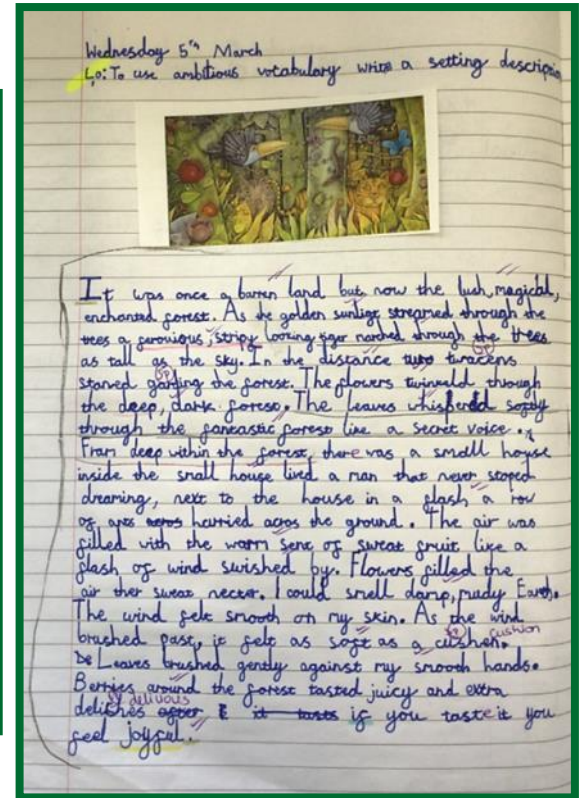 Wednesday 5th March
Lo: To use ambitious vocabulary write a setting description
It was once a barren land but now the lush, magical,
enchanted forest. As the golden sunligt streamed through the
trees a ferovious stripy looking tiger narched through the trees
as tall as the sky. In the distance two twracens
stared garding the forest. The flowers twinveld through
the deep, dark forest. The leaves whispered softly
through the fantastic forest like a secret voice.
Fram deep within the forest, there was a small house
inside the small house lived a man that never stoped
dreaming, next to the house in a flash a row
of ants acros hurried acros the ground. The air was
filled with the warm senc of sweat fruit like a
flash of wind swished by. Flowers filled the
air ther sweat necter. I could smell damp, mudy Earth.
The wind felt smooth on my skin. As the wind
brushed past, it felt as soft as a cushen. cushion
De Leaves brushed gently against my smooth hands.
Berries around the forest tasted juicy and extra
delicious
delishes after I it tasts if you taste it you
feel joyful.